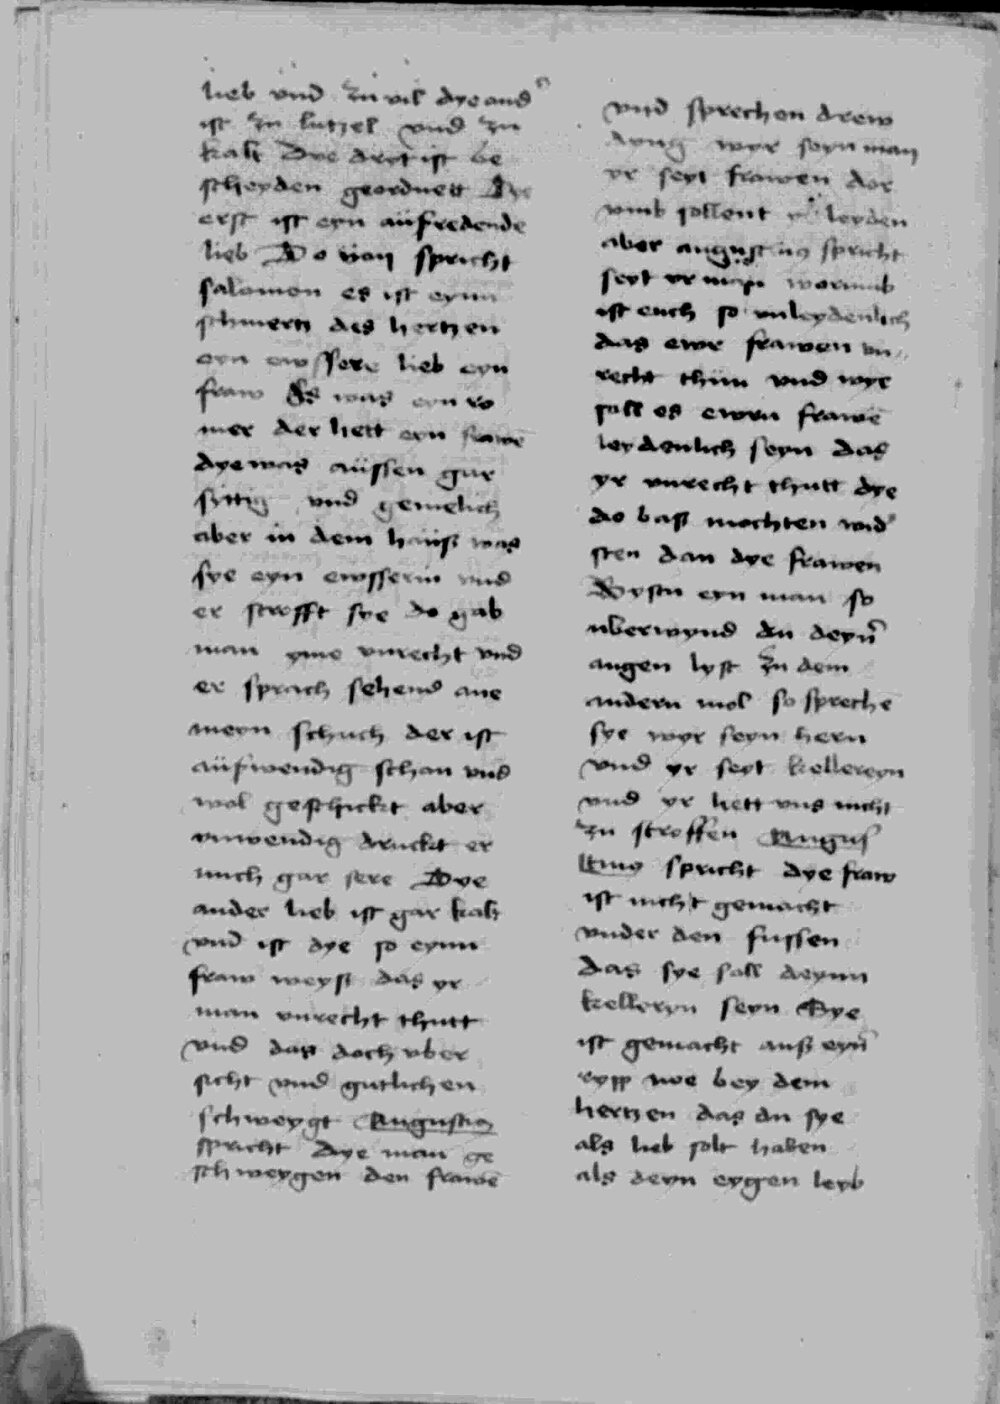 lieb vnd zu vil dye and
ist zu lutzel vnd zu
kalt Dye dryt ist be
scheyden geordnett Dye
erst ist eyn aüfredende
lieb Do von spricht
salomon es ist eynn
schmertz des hertzen
eyn ewssere lieb eyn
fraw Es was eyn ro
mer der hett eyn frawē
dye was aüssen gar
syttig vnd gemelich
aber in dem haüß was
sye eyn ewsserin vnd
er strofft sye do gab
man yme vnrecht vnd
er sprach sehend ane
meyn schuch der ist
aüfwendig schon vnd
wol geschickt aber
vnwendig druckt er
mich gar sere Dye
ander lieb ist gar kalt
vnd ist dye so eynn
fraw weyst das yr
man vnrecht thutt
vnd das doch vber
sicht vnd gutlichen
schweygt Augustin
spricht dye man ge
schweygen den frawē
vnd sprechen drew
dyng wyr seyn man
yr seyt frawen dor
vmb sollent yr leyden
aber augustinus spricht
seyt yr man worumb
ist euch so vnleydenlich
das ewr frawen vn
recht thun vnd wye
soll es ewrn frawē
leydenlich seyn das
yr vnrecht thutt dye
do baß mochten wid
sten dan dye frawen
Bystu eyn man so
uberwynd du deyn
augen lyst Zu dem
andern mol so spreche
sye wyr seyn hern
vnd yr seyt kellereyn
vnd yr hett vns nicht
zu stroffen Augus
tinus spricht dye fraw
ist nicht gemacht
vnder den fussen
das sye soll deynn
kelleryn seyn Sye
ist gemacht auß eyn
rypp noe bey dem
hertzen das du sye
als lieb solt haben
als deyn eygen leyb